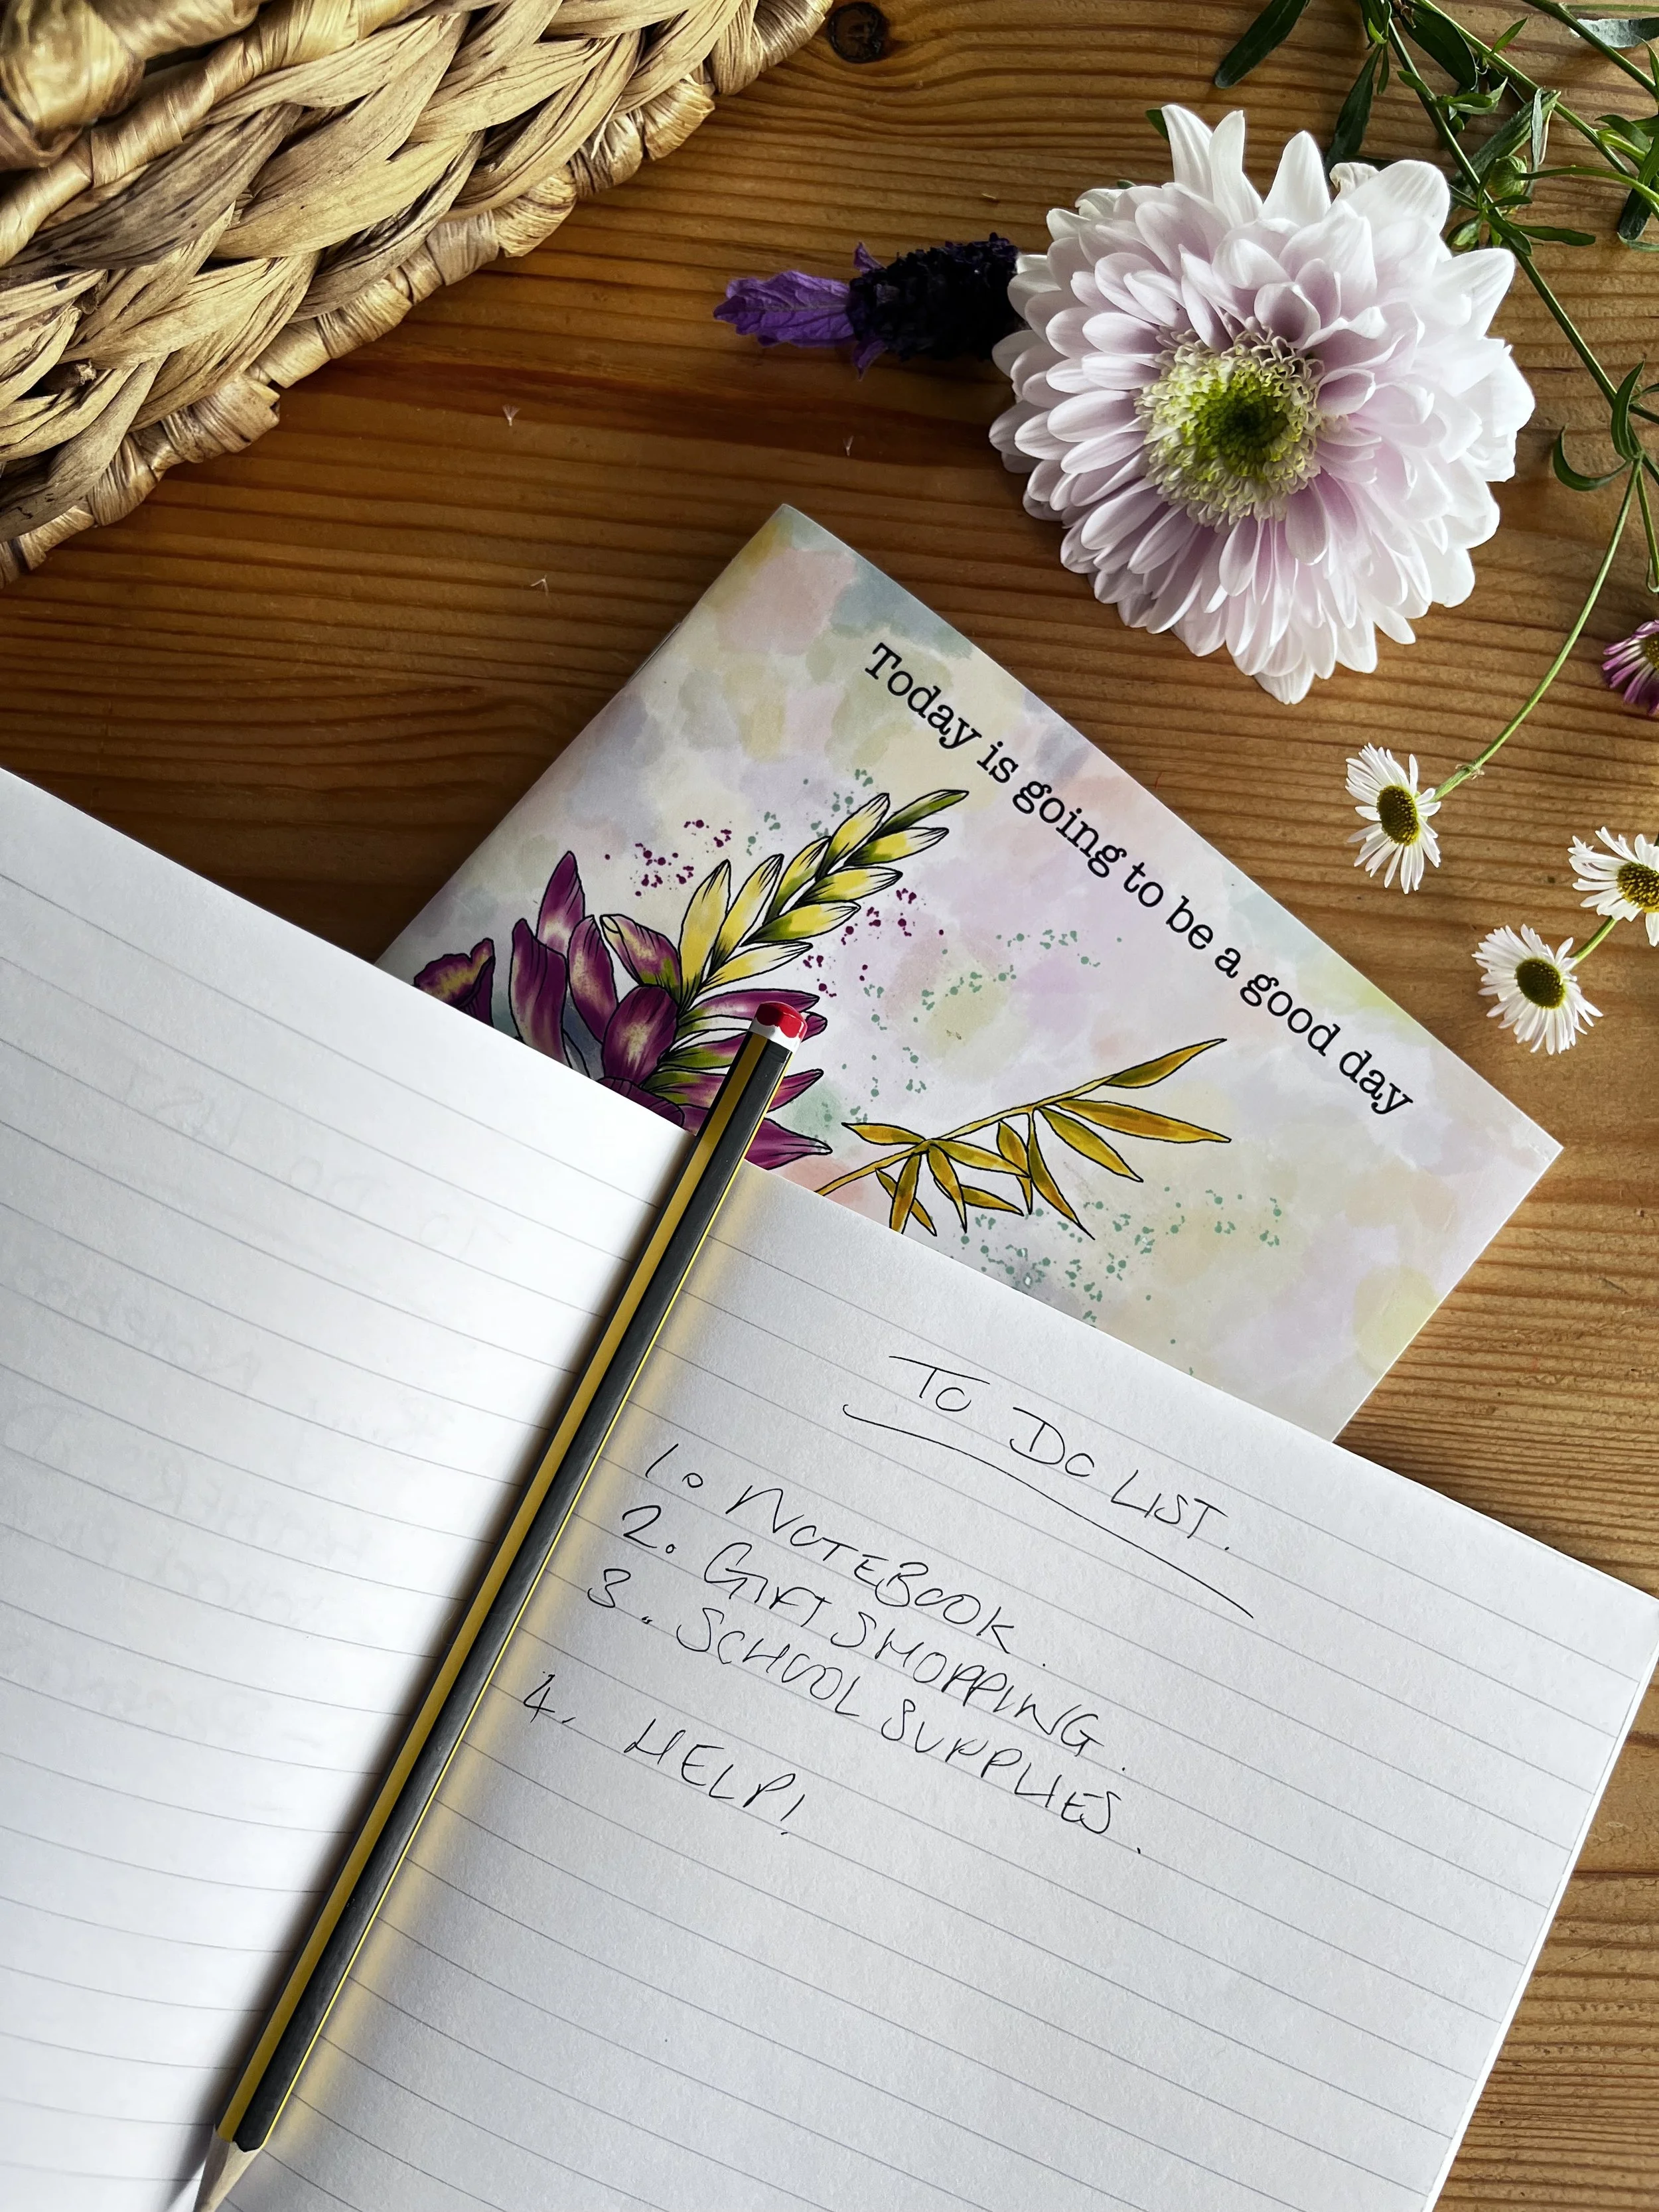 Today is going to be a good day
TO DO LIST.
1. NOTEBOOK.
2. GIFT SHOPPING.
3. SCHOOL SUPPLIES.
4. HELP!